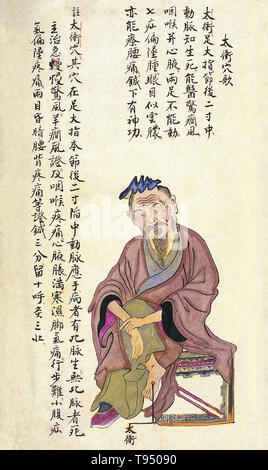 太衝穴歌
太衝足大指節後二寸中
動脈知生死能醫驚癇風
咽喉并心脹兩足不能動
七疝偏墜腫眼目似雲朦
亦能療腰痛鍼下有神功
註太衝穴其穴在足大指本節後二寸陷中動脈應手病者有此脈生無此脈者死
主治急慢驚風羊癇風證及咽喉疼痛心腹脹滿寒濕腳氣痛行步難小腹疝
氣偏墜疼痛兩目昏暗腰背疼痛等證鍼三分留十呼灸三壯
太衝